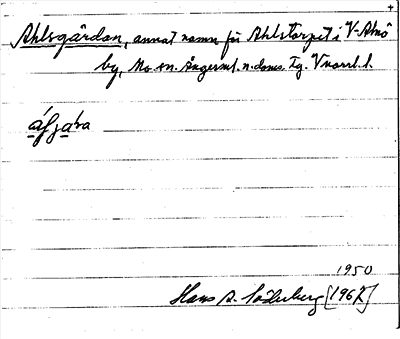 Ahlsgården, annat namn för Ahlstorpet i V-Alnö
by, Mo sn. Ångerml. n. doms. tg. Vnorrl. l.
1950
Hans A. Söderberg [1967]